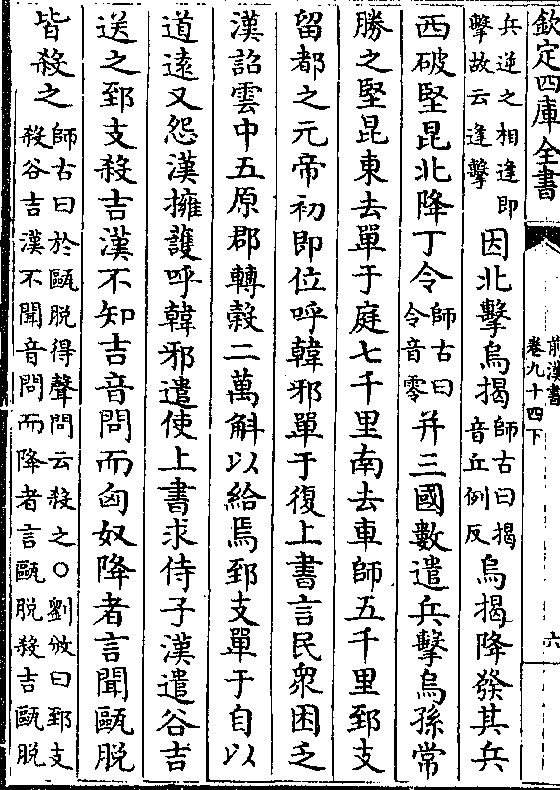 欽定四庫全書
前漢書
卷九十四下
六
兵逆之相逢即
擊故云逢擊
因北擊烏揭
師古曰揭
音丘例反
烏揭降發其兵
西破堅昆北降丁令
師古曰
令音零
并三國數遣兵擊烏孫常
勝之堅昆東去單于庭七千里南去車師五千里郅支
留都之元帝初即位呼韓邪單于復上書言民衆困乏
漢詔雲中五原郡轉穀二萬斛以給焉郅支單于自以
道遠又怨漢擁護呼韓邪遣使上書求侍子漢遣谷吉
送之郅支殺吉漢不知吉音問而匈奴降者言聞甌脫
皆殺之
師古曰於甌脫得聲問云殺之○劉攽曰郅支
殺谷吉漢不聞音問而降者言甌脫殺吉甌脫